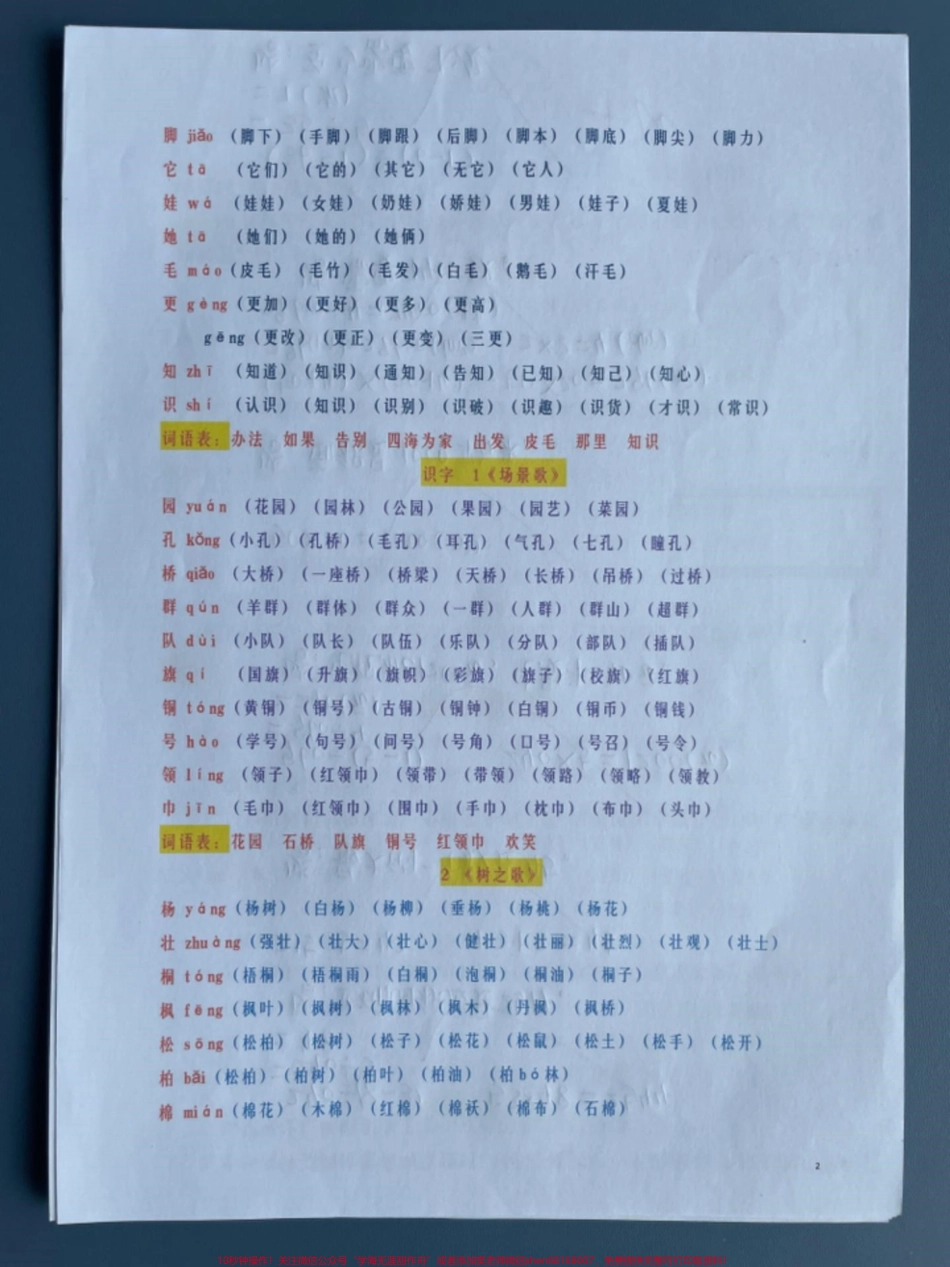 脚 jiǎo （脚下）（手脚）（脚跟）（后脚）（脚本）（脚底）（脚尖）（脚力）
它 tā （它们）（它的）（其它）（无它）（它人）
娃 wá （娃娃）（女娃）（奶娃）（娇娃）（男娃）（娃子）（夏娃）
她 tā （她们）（她的）（她俩）
毛 máo（皮毛）（毛竹）（毛发）（白毛）（鹅毛）（汗毛）
更 gèng（更加）（更好）（更多）（更高）
gēng（更改）（更正）（更变）（三更）
知 zhī （知道）（知识）（通知）（告知）（已知）（知己）（知心）
识 shí （认识）（知识）（识别）（识破）（识趣）（识货）（才识）（常识）
词语表：办法 如果 告别 四海为家 出发 皮毛 那里 知识
识字 1《场景歌》
园 yuán （花园）（园林）（公园）（果园）（园艺）（菜园）
孔 kǒng（小孔）（孔桥）（毛孔）（耳孔）（气孔）（七孔）（瞳孔）
桥 qiáo （大桥）（一座桥）（桥梁）（天桥）（长桥）（吊桥）（过桥）
群 qún （羊群）（群体）（群众）（一群）（人群）（群山）（超群）
队 duì （小队）（队长）（队伍）（乐队）（分队）（部队）（插队）
旗 qí （国旗）（升旗）（旗帜）（彩旗）（旗子）（校旗）（红旗）
铜 tóng（黄铜）（铜号）（古铜）（铜钟）（白铜）（铜币）（铜钱）
号 hào （学号）（句号）（问号）（号角）（口号）（号召）（号令）
领 lǐng （领子）（红领巾）（领带）（带领）（领路）（领略）（领教）
巾 jīn （毛巾）（红领巾）（围巾）（手巾）（枕巾）（布巾）（头巾）
词语表：花园 石桥 队旗 铜号 红领巾 欢笑
2 《树之歌》
杨 yáng（杨树）（白杨）（杨柳）（垂杨）（杨桃）（杨花）
壮 zhuàng（强壮）（壮大）（壮心）（健壮）（壮丽）（壮烈）（壮观）（壮士）
桐 tóng（梧桐）（梧桐雨）（白桐）（泡桐）（桐油）（桐子）
枫 fēng（枫叶）（枫树）（枫林）（枫木）（丹枫）（枫桥）
松 sōng（松柏）（松树）（松子）（松花）（松鼠）（松土）（松手）（松开）
柏 bǎi（松柏）（柏树）（柏叶）（柏油）（柏bó林）
棉 mián（棉花）（木棉）（红棉）（棉袄）（棉布）（石棉）
2